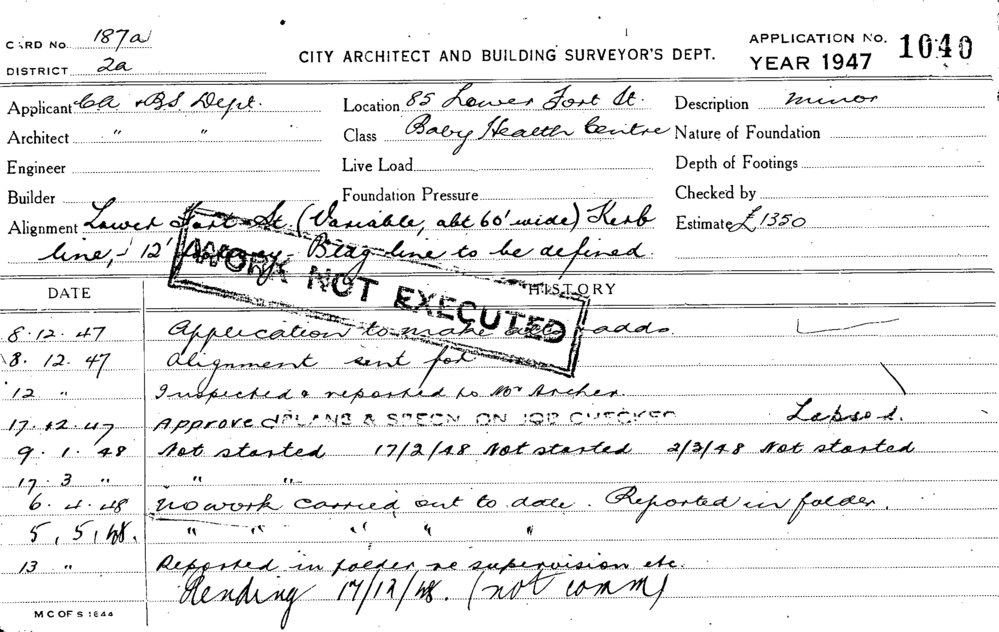 CARD No. 187a
DISTRICT 2a
CITY ARCHITECT AND BUILDING SURVEYOR'S DEPT.
APPLICATION No. 1040
YEAR 1947
Applicant CA & BS Dept. Location 85 Lower Fort St. Description minor
Architect " " Class Baby Health Centre Nature of Foundation
Engineer Live Load Depth of Footings
Builder Foundation Pressure Checked by
Alignment Lower Fort St (Variable, abt 60' wide) Kerb Estimate £1350
line, - 12' Bldg line to be defined.
WORK NOT EXECUTED
DATE HISTORY
8.12.47 Application to make alts adds.
8.12.47 Alignment sent for
12 " Inspected & reported to Mr Archer.
17.12.47 Approved PLANS & SPECN ON JOB CHECKED Lapsed.
9.1.48 Not started 17/2/48 Not started 2/3/48 Not started
17.3 " " "
6.4.48 No work carried out to date. Reported in folder.
5,5,48. " " " " "
13 " Reported in folder re supervision etc.
Pending 17/12/48. (not comm)
M C OF S 1844